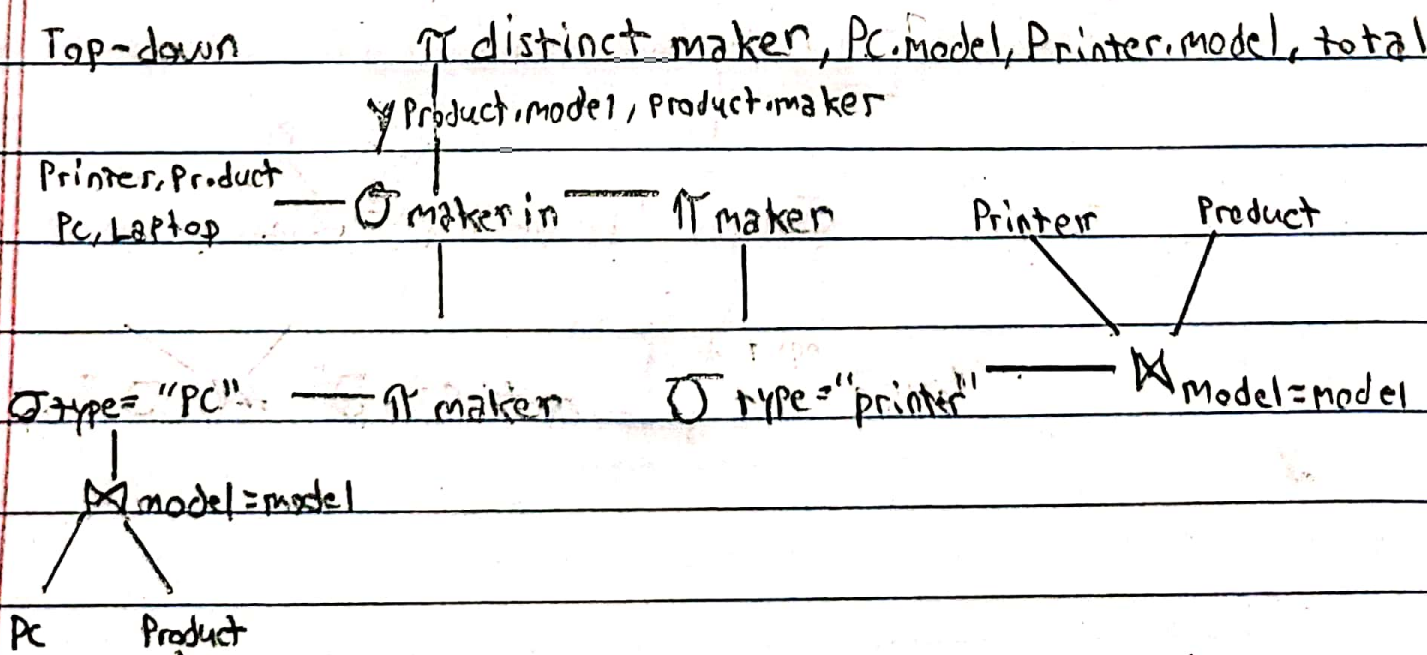 Top-down π distinct maker, Pc.model, Printer.model, total
γ Product.model, product.maker
Printer, Product
Pc, Laptop
σ maker in π maker Printer Product
σ type= "PC" π maker σ type="printer" ⋈ Model=model
⋈ model=model
Pc Product